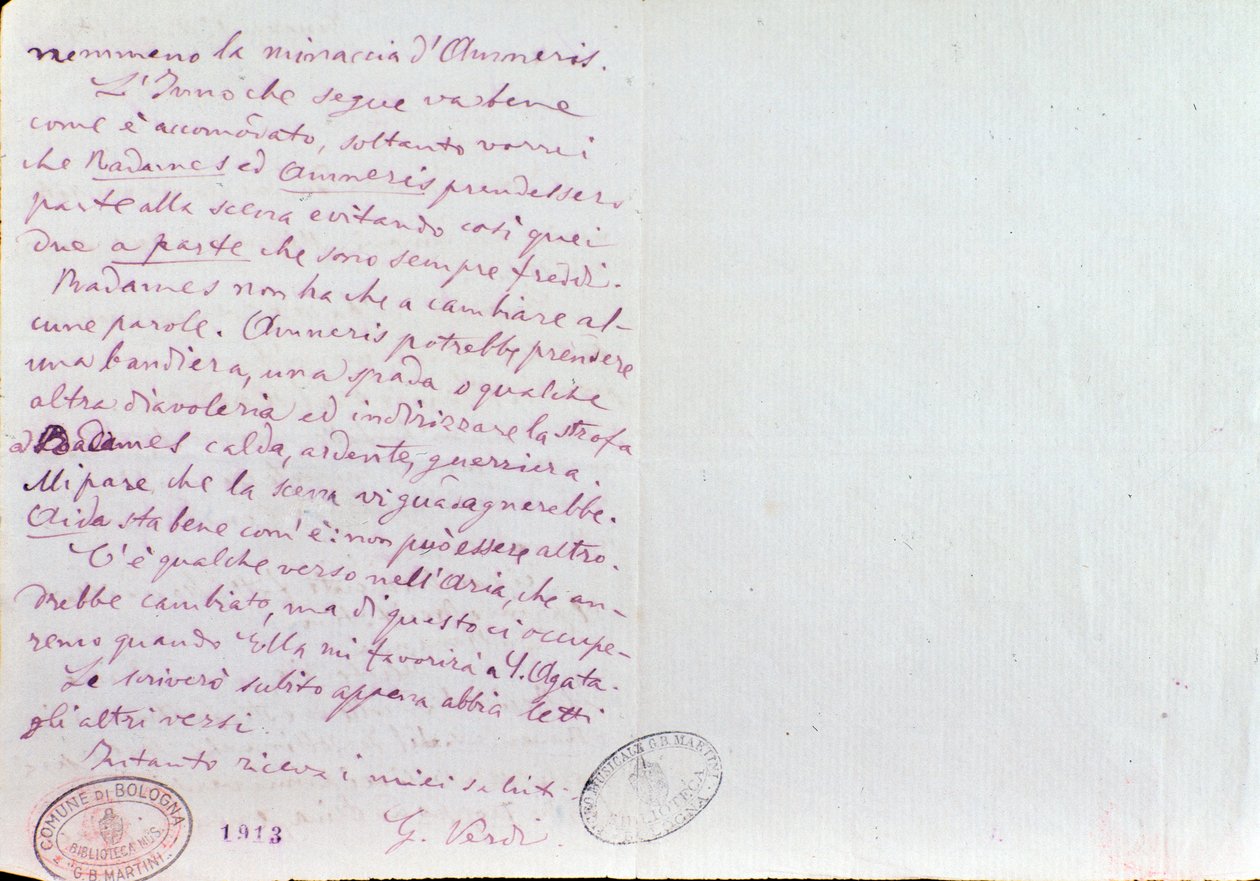 nemmeno la minaccia d'Amneris.
L'Inno che segue va bene
come è accomodato, soltanto vorrei
che Radames ed Amneris prendessero
parte alla scena evitando così quei
due a parte che sono sempre freddi.
Radames non ha che a cambiare al-
cune parole. Amneris potrebbe prendere
una bandiera, una spada o qualche
altra diavoleria ed indirizzare la strofa
a Radames calda, ardente, guerriera.
Mi pare che la scena vi guadagnerebbe.
Aida sta bene com'è: non può essere altro.
C'è qualche verso nell'Aria, che an-
drebbe cambiato, ma di questo ci occupe-
remo quando Ella mi favorirà a S. Agata.
Le scriverò subito appena abbia letti
gli altri versi
Intanto riceva i miei saluti.
G. Verdi
COMUNE DI BOLOGNA
BIBLIOTECA MUS.
G.B. MARTINI
1913
MUSICALE G.B. MARTINI
BIBLIOTECA
BOLOGNA